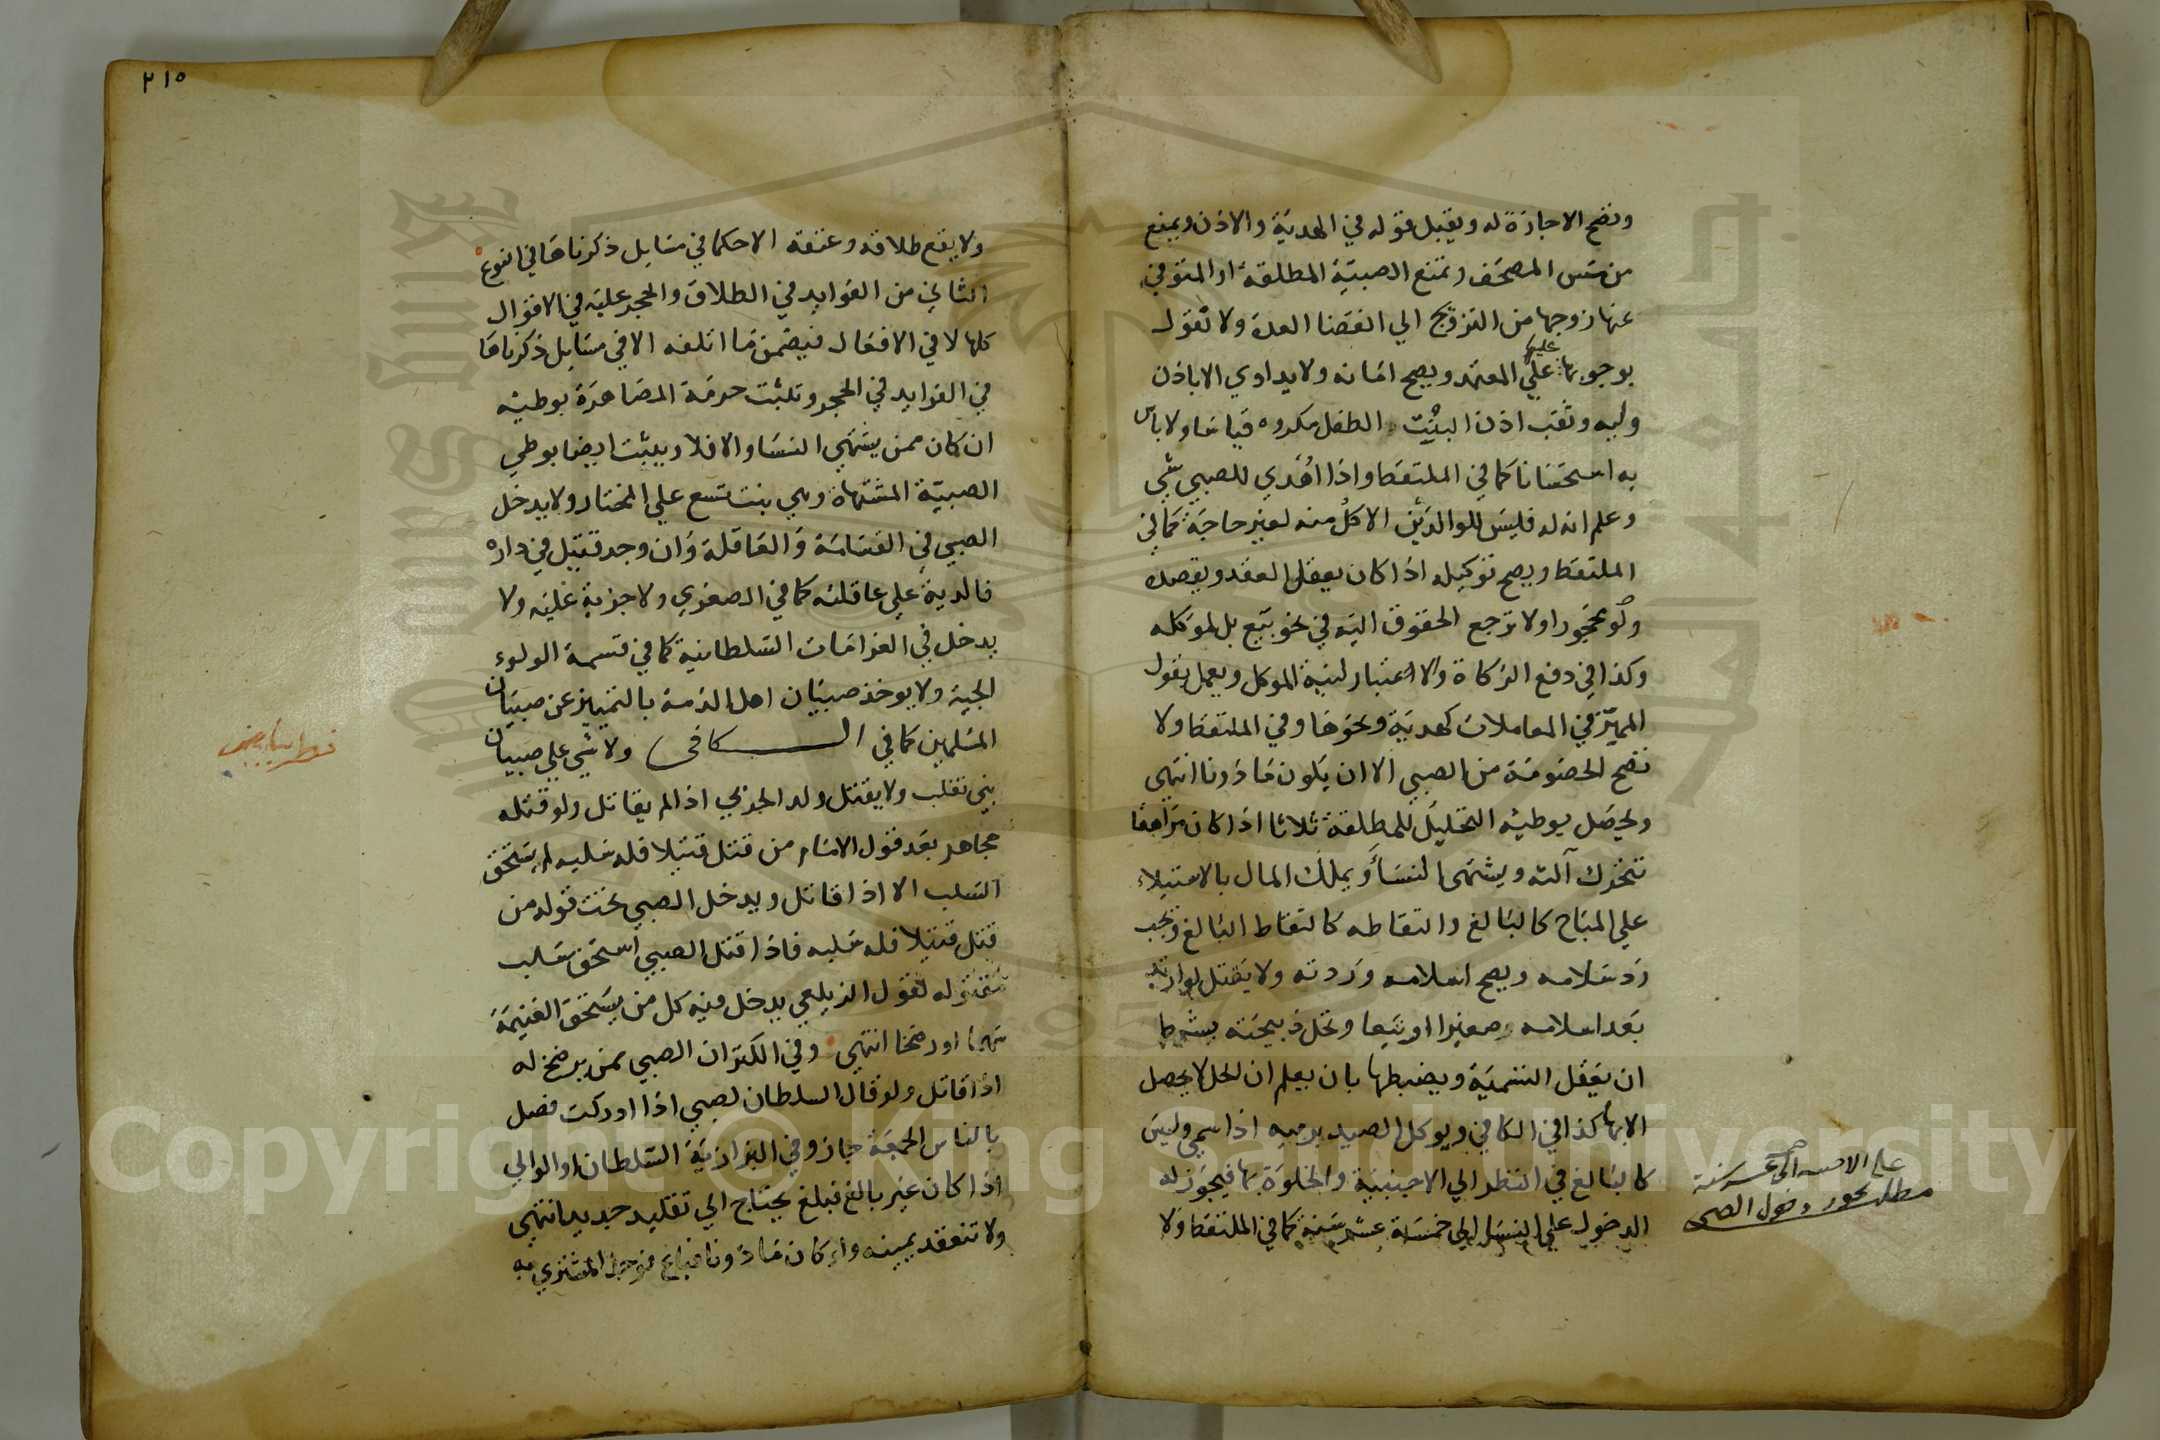 وتصح الاجازة له ويقبل قوله في الهدية والاذن ويمنع
من مس المصحف وتمنع الصبية المطلقة او المتوفي
عنها زوجها من التزويج الي انقضا العدة ولا نقول
بوجوبها عليها علي المعتمد ويصح امانه ولا يداوي الا باذن
وليه وثقب اذن البنت الطفل مكروه قياسا ولا باس
به استحسانا كما في الملتقط واذا اهدي للصبي شي
وعلم انه له فليس للوالدين الاكل منه لغير حاجة كما في
الملتقط ويصح توكيله اذا كان يعقل العقد ويقصده
ولو محجورا ولا ترجع الحقوق اليه في نحو بيع بل لموكله
وكذا في دفع الزكاة والاعتبار لنية الموكل ويعمل بقول
المميز في المعاملات كهدية ونحوها وفي الملتقط ولا
تصح الخصومة من الصبي الا ان يكون ماذونا انتهي
ويحصل بوطيه التحليل للمطلقة ثلاثا اذا كان مراهقا
تتحرك آلته ويشتهي النسا ويملك المال بالاستيلاء
علي المباح كالبالغ والتقاطه كالتقاط البالغ وتجب
رد سلامه ويصح اسلامه وردته ولا يقتل لو ارتد
بعد اسلامه صغيرا او تبعا وتحل ذبيحته بشرط
ان يعقل التسمية ويضبطها بان يعلم ان الحل لا يحصل
الا بها كذا في الكافي ويوكل الصيد برميه اذا سمي وليس
كالبالغ في النظر الي الاجنبية والخلوة بها فيجوز له
الدخول علي النسا الي خمسة عشر سنة كما في الملتقط ولا
مطلب يجوز دخول الصبي
علي الاجنبية الي سنة
٢١٥
ولا يقع طلاقه وعتقه الا حكما في مسايل ذكرناها في النوع
الثاني من الفوايد في الطلاق والحجر عليه في الاقوال
كلها لا في الافعال فيضمن ما اتلفه الا في مسايل ذكرناها
في الفوايد في الحجر وتثبت حرمة المصاهرة بوطيه
ان كان ممن يشتهي النسا والا فلا ويثبت ايضا بوطي
الصبية المشتهاة وهي بنت تسع علي المختار ولا يدخل
الصبي في القسامة والعاقلة وان وجد قتيل في داره
فالدية علي عاقلته كما في الصغري ولا جزية عليه ولا
يدخل في الغرامات السلطانية كما في قسمة الولو
لجية ولا يوخذ صبيان اهل الذمة بالتمييز عن صبيان
المسلمين كما في الكافي ولا شي علي صبيان
بني تغلب ولا يقتل ولد الحربي اذا لم يقاتل ولو قتله
مجاهد بعد قول الامام من قتل قتيلا فله سلبه لم يستحق
السلب الا اذا قاتل ويدخل الصبي تحت قوله من
قتل قتيلا فله سلبه فاذا قتل الصبي استحق سلب
مقتوله لقول الزيلعي يدخل فيه كل من يستحق الغنيمة
سهما او رضخا انتهي وفي الكنز ان الصبي ممن يرضخ له
اذا قاتل ولو قال السلطان لصبي اذا ادركت فصل
بالناس الجمعة جاز وفي البزازية السلطان او الوالي
اذا كان غير بالغ فبلغ يحتاج الي تقليد جديد انتهي
ولا تنعقد يمينه ولو كان ماذونا فباع فوجد المشتري به
Copyright © King Saud University
King Saud University
1957